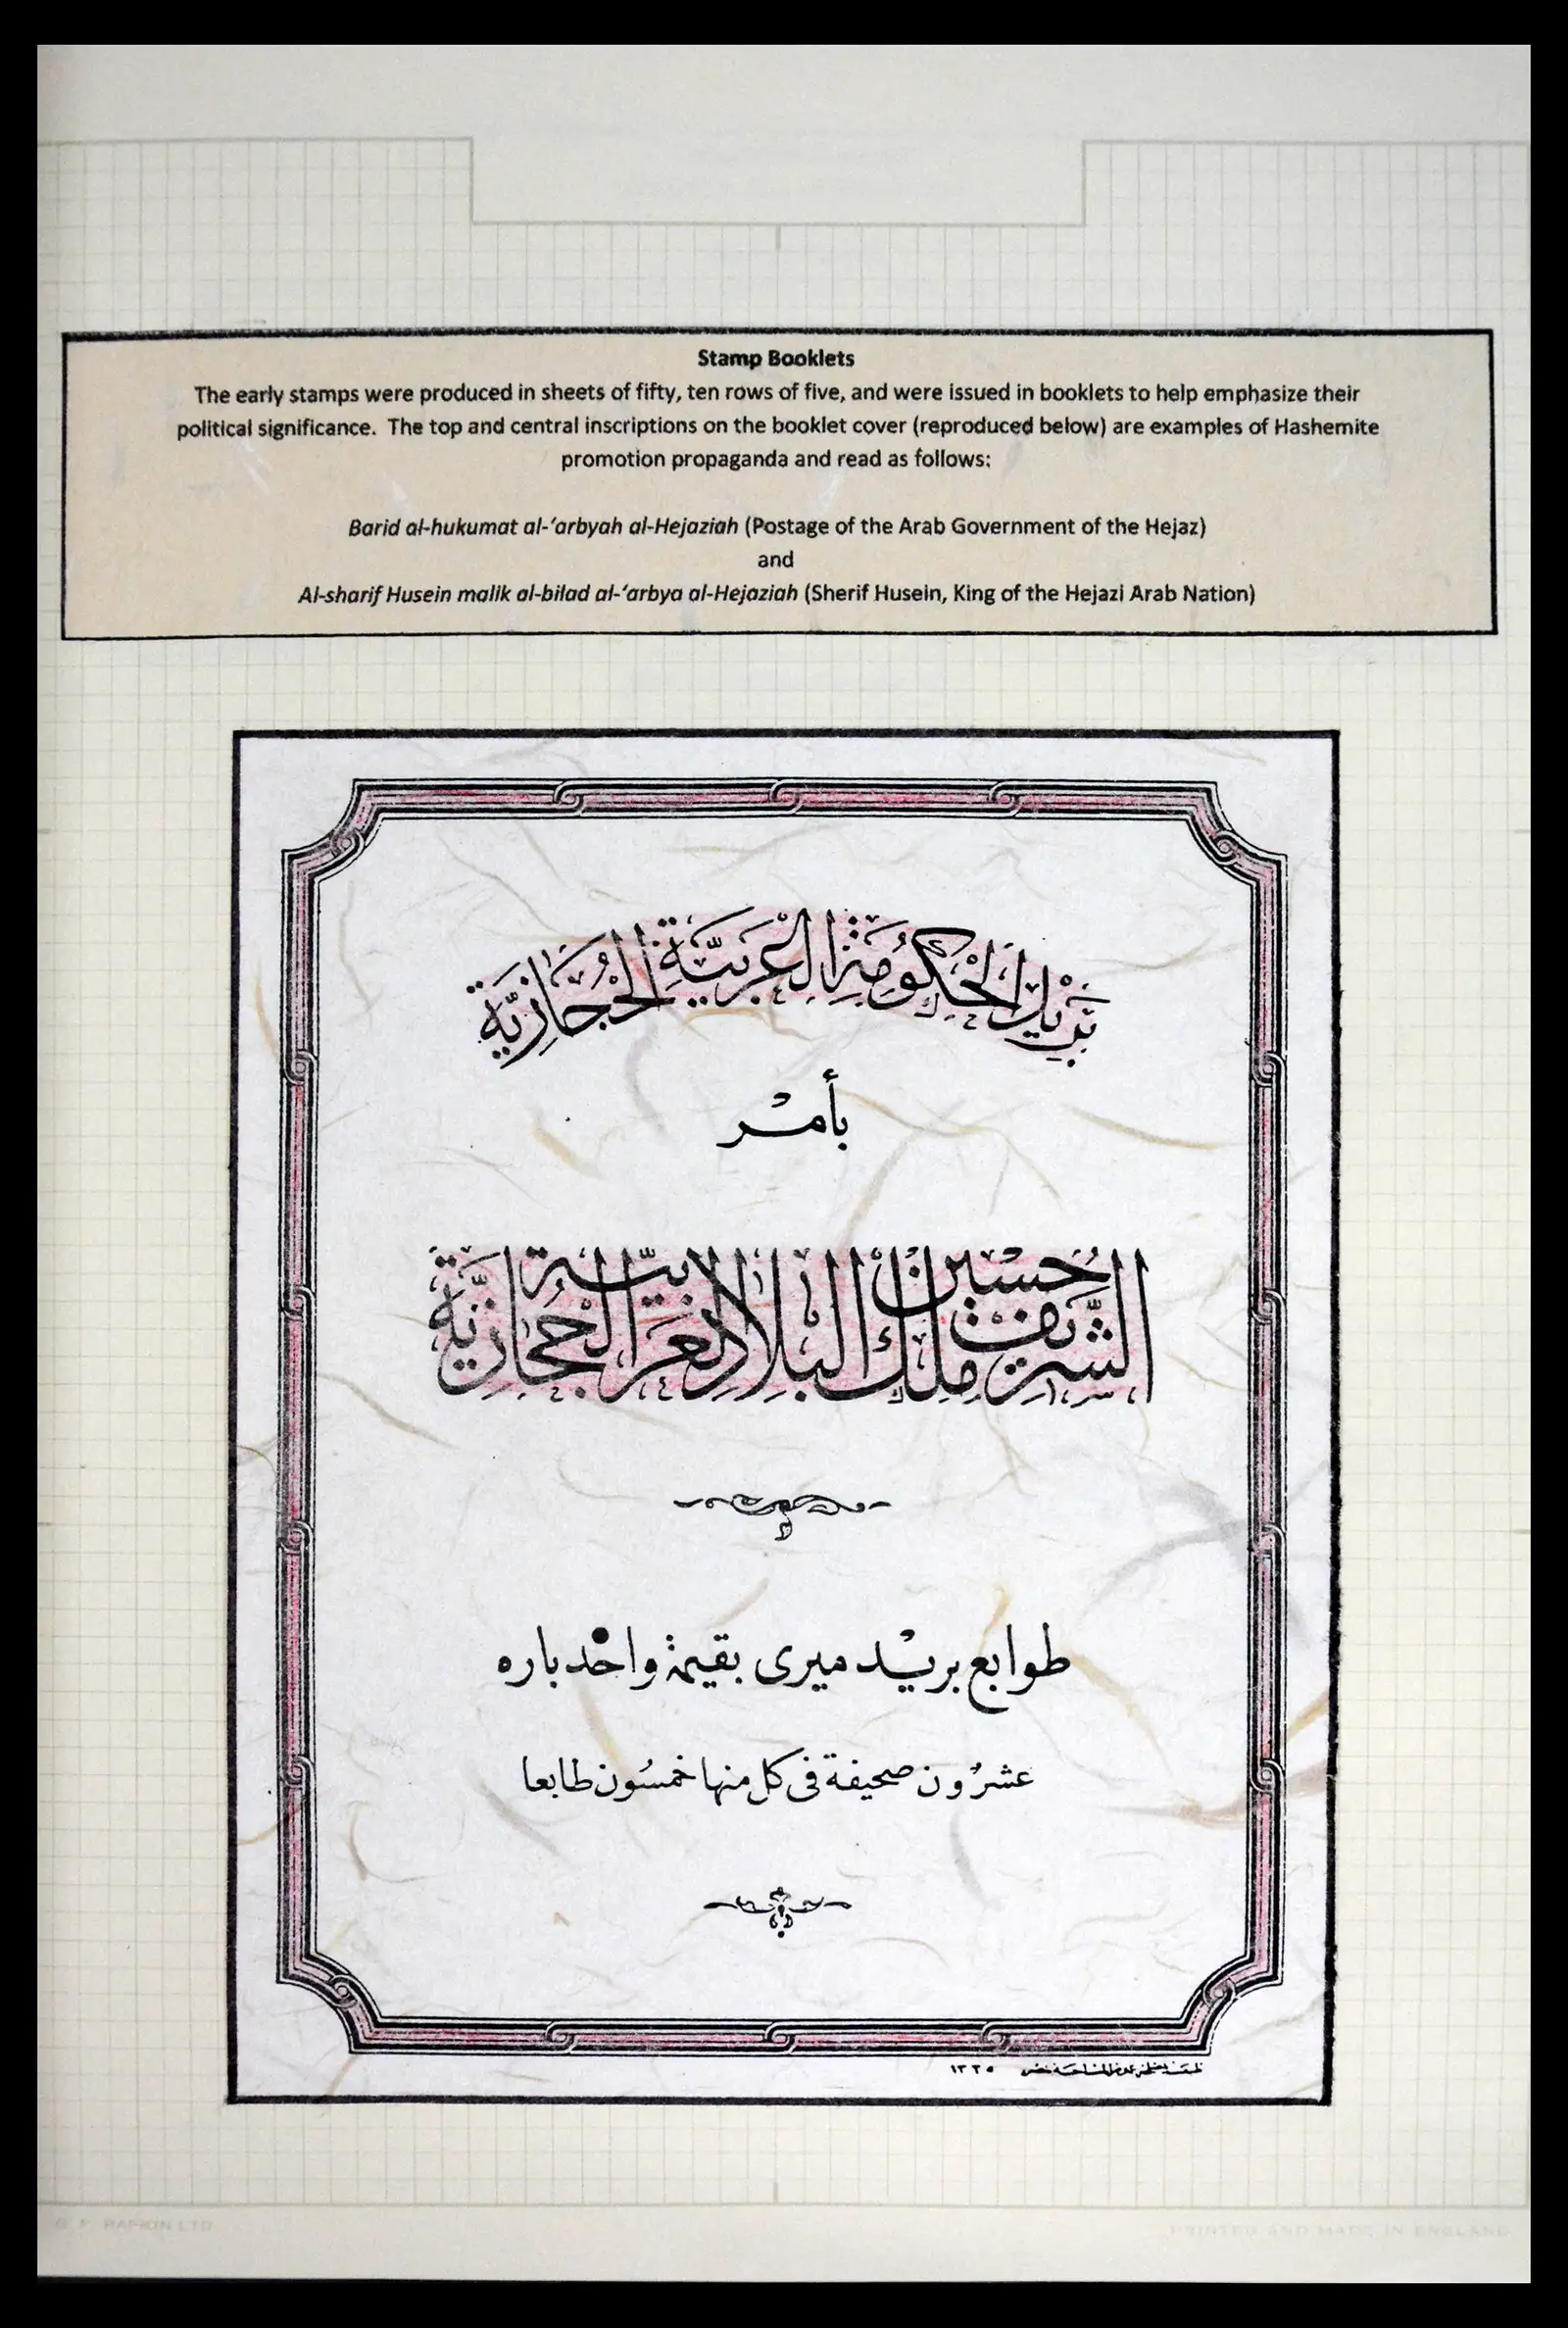 Stamp Booklets
The early stamps were produced in sheets of fifty, ten rows of five, and were issued in booklets to help emphasize their
political significance. The top and central inscriptions on the booklet cover (reproduced below) are examples of Hashemite
promotion propaganda and read as follows:
Barid al-hukumat al-‘arbyah al-Hejaziah (Postage of the Arab Government of the Hejaz)
and
Al-sharif Husein malik al-bilad al-‘arbya al-Hejaziah (Sherif Husein, King of the Hejazi Arab Nation)
بريد الحكومة العربية الحجازية
بأمر
الشريف حسين ملك البلاد العربية الحجازية
طوابع بريد ميرى بقيمة واحد باره
عشرون صحيفة فى كل منها خمسون طابعا
١٣٣٥
G F RAPKIN LTD
PRINTED AND MADE IN ENGLAND